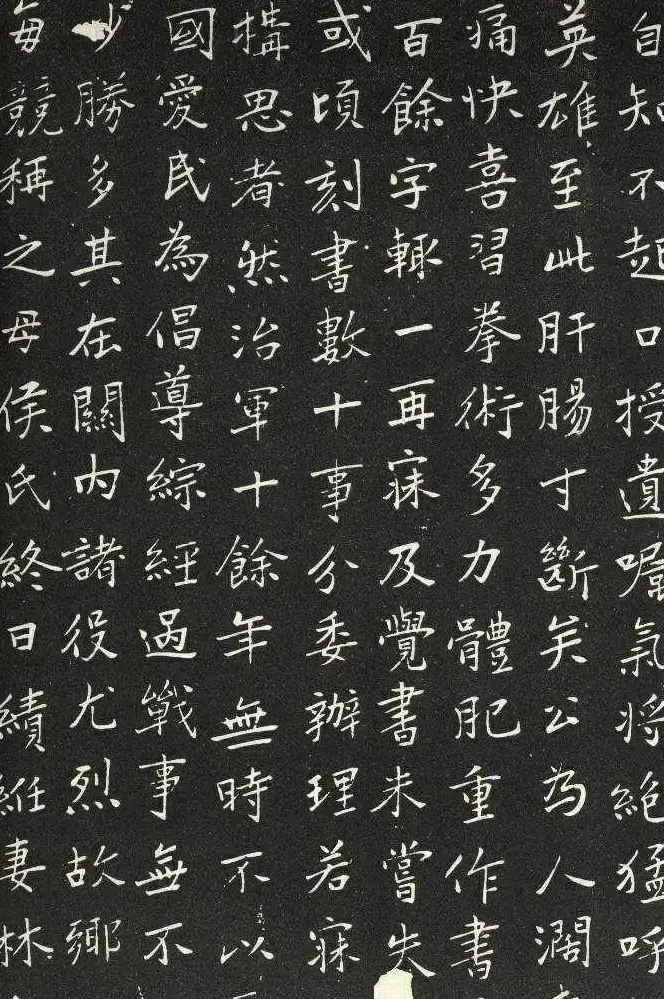 自知不起口授遺囑氣將絕猛呼
英雄至此肝腸寸斷矣公為人濶
痛快喜習拳術多力體肥重作書
百餘字輒一再寐及覺書未嘗失
或頃刻書數十事分委辦理若寐
構思者然治軍十餘年無時不以
國愛民為倡導綜經過戰事無不
少勝多其在關內諸役尤烈故鄉
每競稱之母侯氏終日績絍妻林